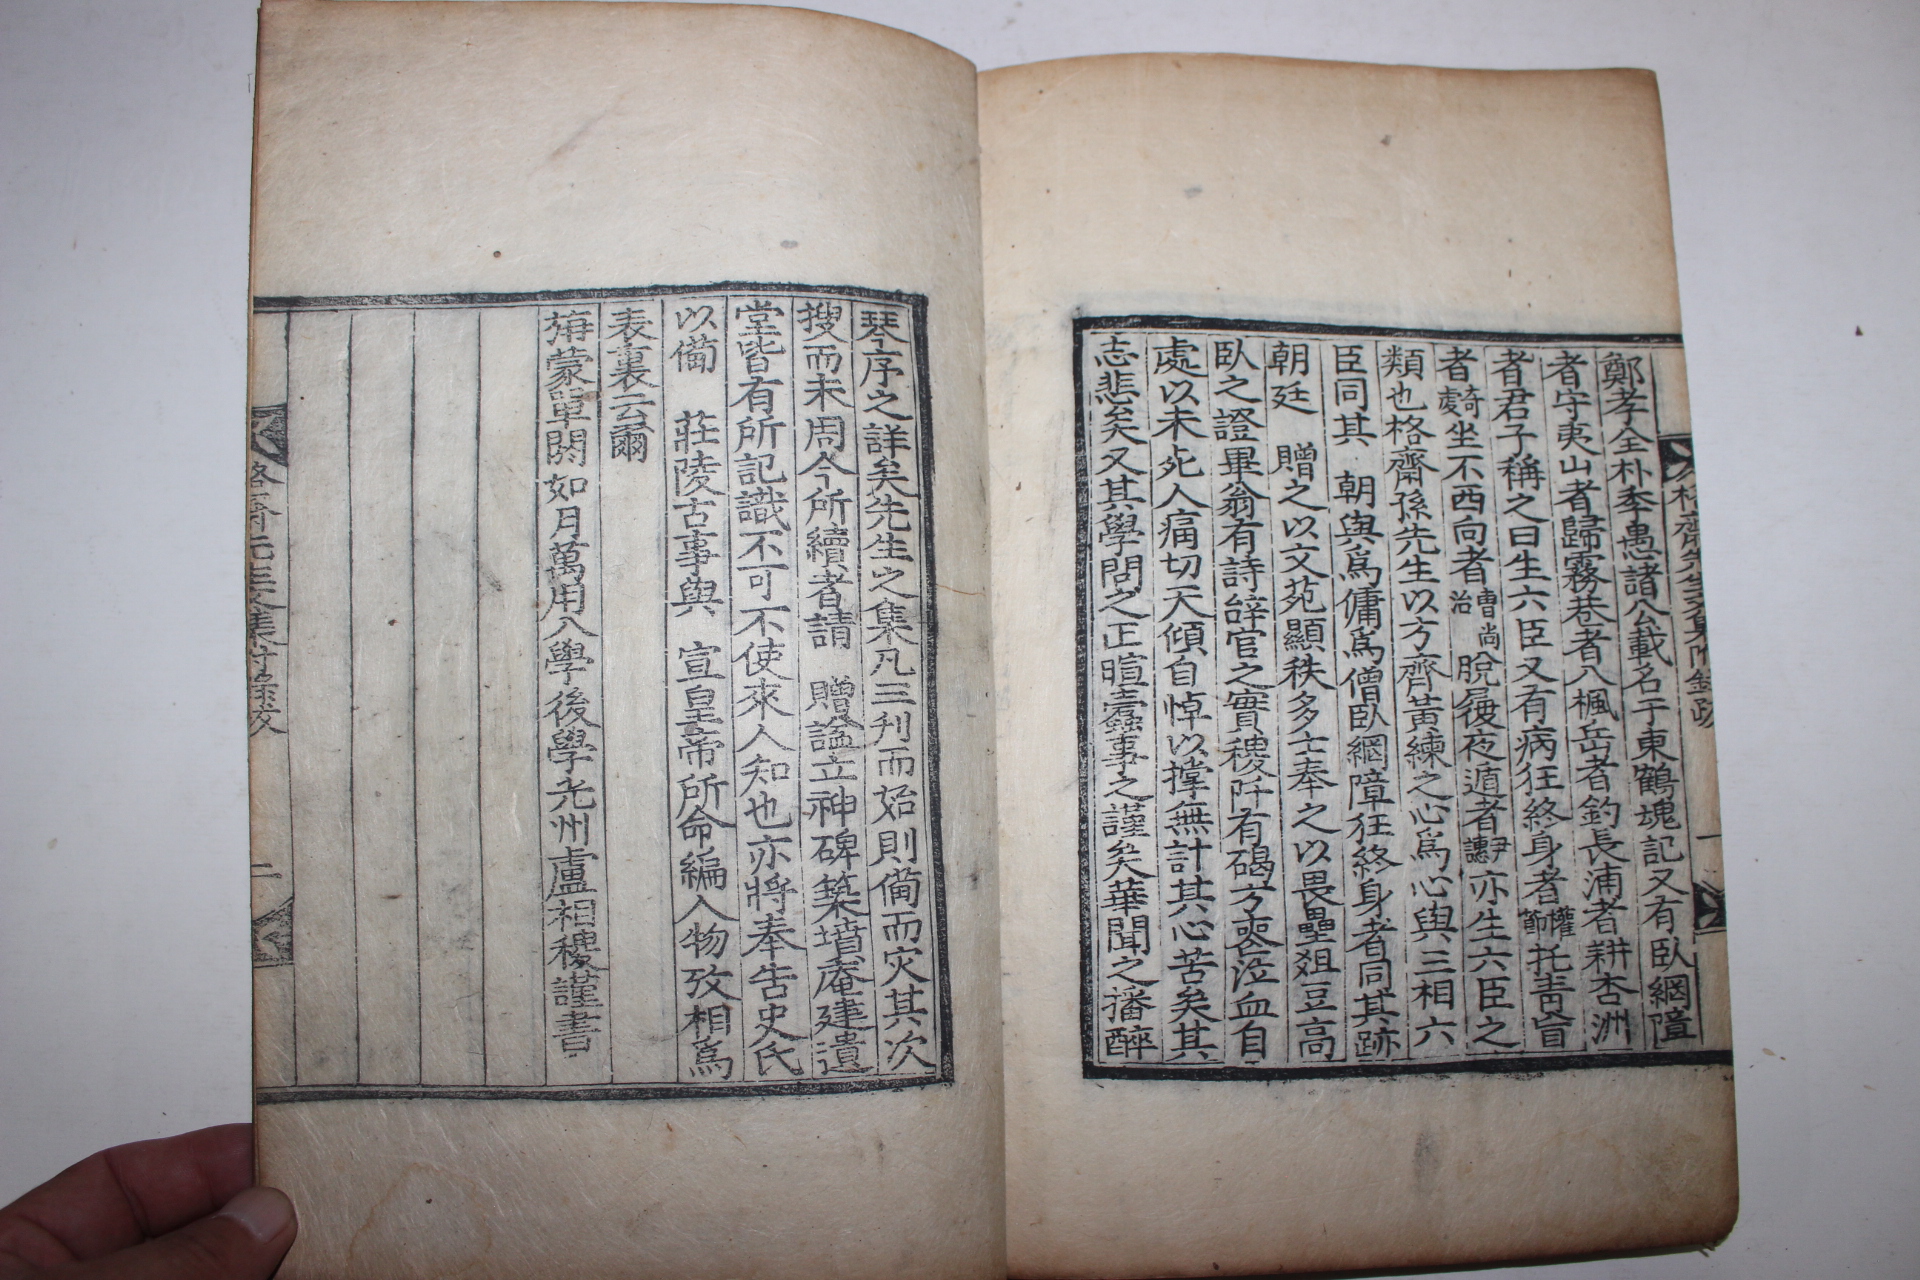 格齋先生文集附錄跋
一
鄭孝全朴季愚諸公載名于東鶴魂記又有臥網障
者守夷山者歸霧巷者入楓岳者釣長浦者耕杏洲
者君子稱之曰生六臣又有病狂終身者權節托靑盲
者奇虔坐不西向者曹尙治脫屣夜遁者尹譓亦生六臣之
類也格齋孫先生以方齊黃練之心爲心與三相六
臣同其 朝與爲傭爲僧臥網障狂終身者同其跡
朝廷 贈之以文苑顯秩多士奉之以畏壘俎豆高
臥之證畢翁有詩辞官之實稷阡有碣方喪泣血自
處以未死人痛切天傾自悼以撑無計其心苦矣其
志悲矣又其學問之正暄蠹事之謹矣華聞之播醉
琴序之詳矣先生之集凡三刋而始則備而灾其次
搜而未周今所續者請 贈謚立神碑築墳庵建遺
堂皆有所記識不可不使來人知也亦將奉告史氏
以備 莊陵古事與 宣皇帝所命編人物攷相爲
表裏云爾
旃蒙單閼如月萬用八學後學光州盧相稷謹書
格齋先生文集附錄跋
二